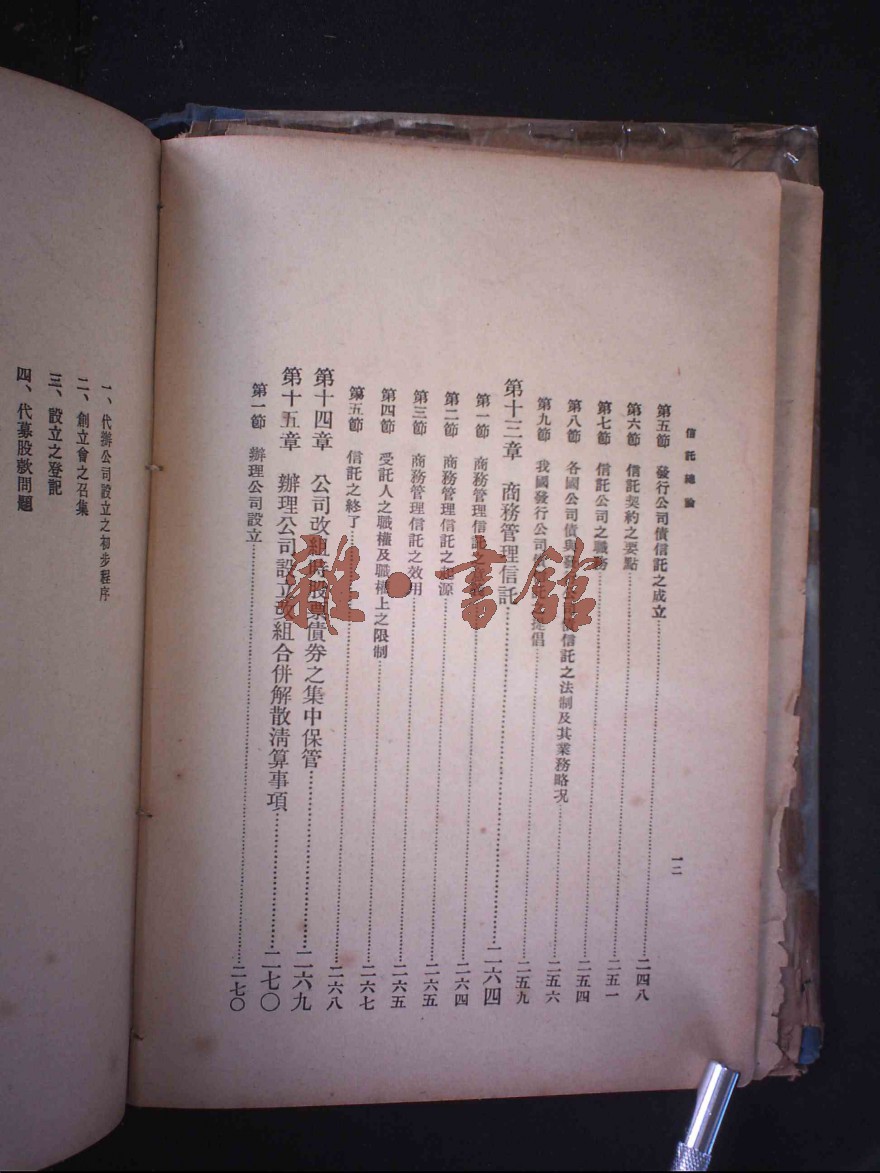 信託總論
一二
第五節 發行公司債信託之成立……二四八
第六節 信託契約之要點……二五一
第七節 信託公司之職務……二五四
第八節 各國公司債與發行公司債信託之法制及其業務略況……二五六
第九節 我國發行公司債信託之提倡……二五九
第十三章 商務管理信託……二六四
第一節 商務管理信託之……二六四
第二節 商務管理信託之起源……二六五
第三節 商務管理信託之效用……二六五
第四節 受託人之職權及職權上之限制……二六七
第五節 信託之終了……二六八
第十四章 公司改組時股票債券之集中保管……二六九
第十五章 辦理公司設立改組合併解散淸算事項……二七〇
第一節 辦理公司設立……二七〇
一、代辦公司設立之初步程序
二、創立會之召集
三、設立之登記
四、代募股款問題
雜·書館